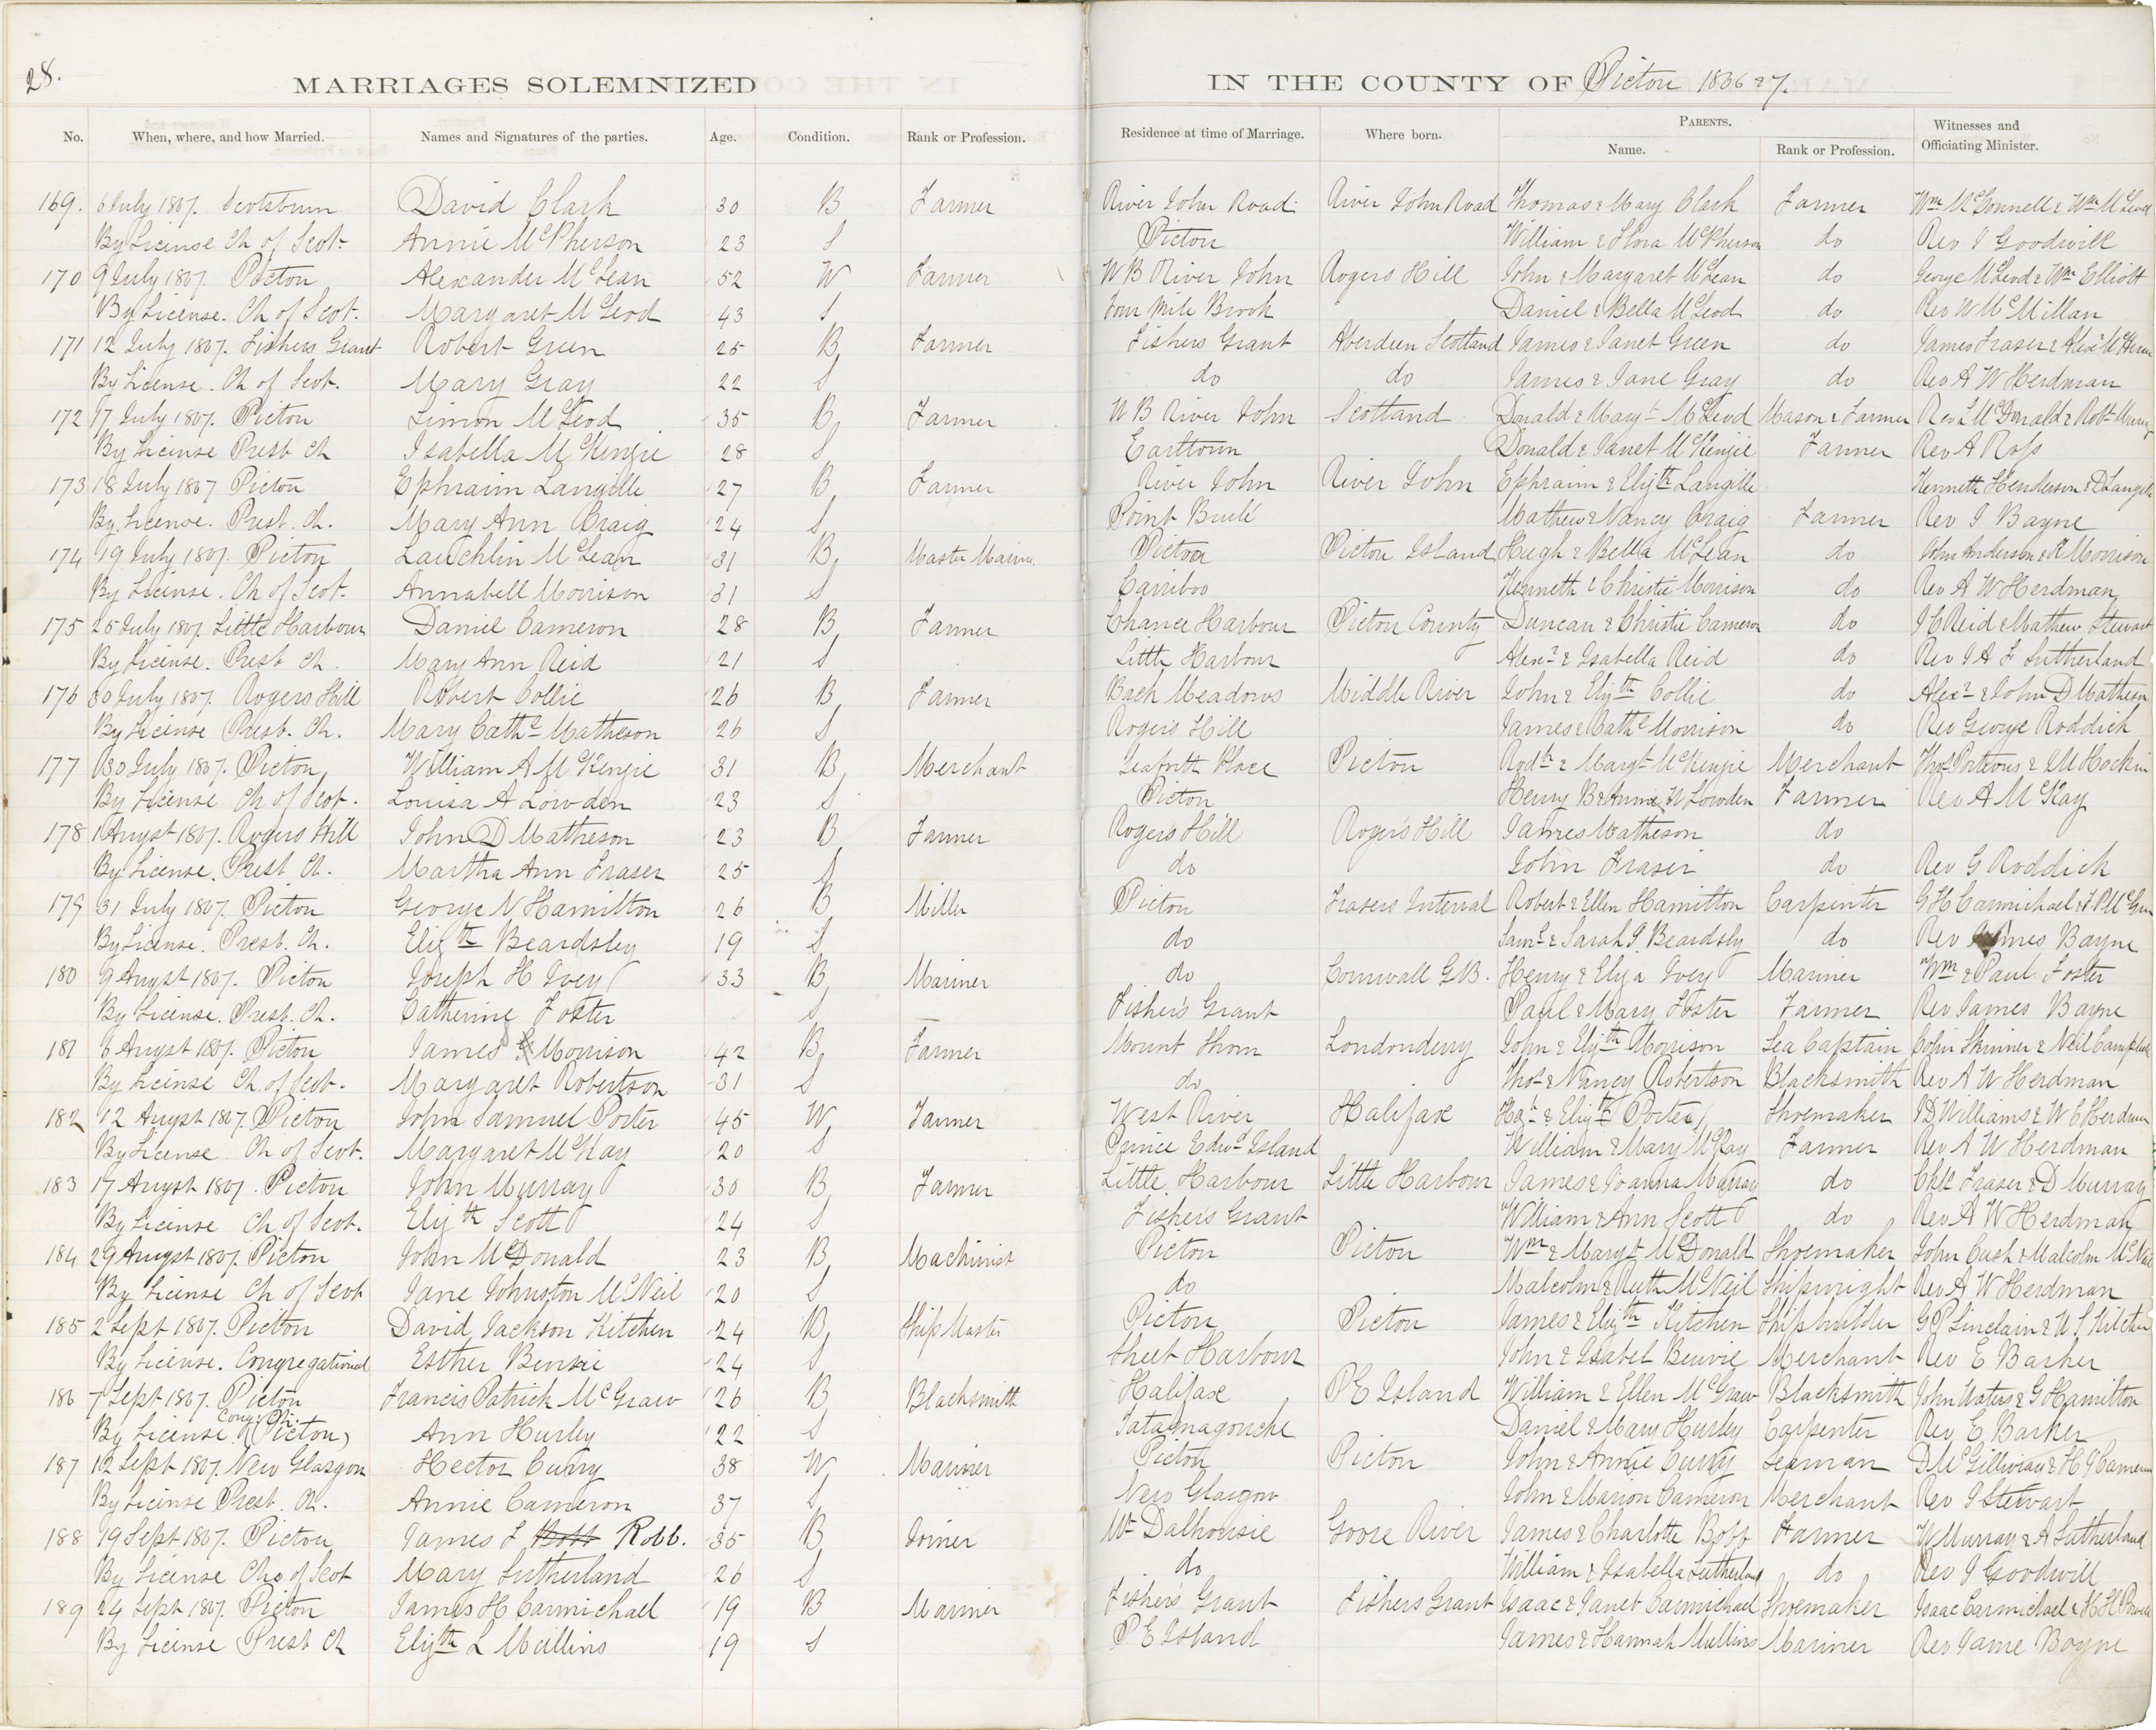 28.
MARRIAGES SOLEMNIZED IN THE COUNTY OF Pictou 1866 & 7.
No. When, where, and how Married. Names and Signatures of the parties. Age. Condition. Rank or Profession. Residence at time of Marriage. Where born. PARENTS. Name. Rank or Profession. Witnesses and Officiating Minister.
169. 6 July 1867. Scotsburn David Clark 30 B Farmer River John Road River John Road Thomas & Mary Clark Farmer Wm McConnell & Wm McLeod
By License Ch of Scot. Annie McPherson 23 S Pictou William & Flora McPherson do Rev J Goodwill
170 9 July 1867. Pictou Alexander McLean 52 W Farmer W B River John Rogers Hill John & Margaret McLean do George McLeod & Wm Elliott
By License. Ch of Scot. Margaret McLeod 43 S Four Mile Brook Daniel & Bella McLeod do Rev W McMillan
171 12 July 1867. Fishers Grant Robert Green 25 B Farmer Fishers Grant Aberdeen Scotland James & Janet Green do James Fraser &
By License. Ch of Scot. Mary Gray 22 S do do James & Jane Gray do Rev A W Herdman
172 17 July 1867. Pictou Simon McLeod 35 B Farmer W B River John Scotland Donald & Mary McLeod Mason & Farmer Rev L McDonald & Robt Murray
By License Presb Ch Isabella McKenzie 28 S Earltown Donald & Janet McKenzie Farmer Rev A Ross
173 18 July 1867 Pictou Ephraim Langille 27 B Farmer River John River John Ephraim & Elizth Langille Kenneth Henderson & D Langille
By License. Presb. Ch. Mary Ann Craig 24 S Point Brulé Mathew & Nancy Craig Farmer Rev J Bayne
174 19 July 1867. Pictou Lauchlin McLean 31 B Master Marine Pictou Pictou Island Hugh & Bella McLean do John Anderson & R Morrison
By License. Ch of Scot. Annabell Morrison 31 S Carriboo Kenneth & Christie Morrison do Rev A W Herdman
175 25 July 1867. Little Harbour Daniel Cameron 28 B Farmer Chance Harbour Pictou County Duncan & Christie Cameron do J C Reid & Mathew Stewart
By License. Presb Ch. Mary Ann Reid 21 S Little Harbour Alexr & Isabella Reid do Rev J A F Sutherland
176 30 July 1867. Rogers Hill Robert Collie 26 B Farmer Back Meadows Middle River John & Elizth Collie do Alexr & John D Matheson
By License Presb. Ch. Mary Cathe Matheson 26 S Rogers Hill James & Cathe Morrison do Rev George Roddick
177 30 July 1867. Pictou William A McKenzie 31 B Merchant Seaforth Place Pictou Rodk & Margt McKenzie Merchant Thos Porteous & Hockin
By License Ch of Scot. Louisa A Lowden 23 S Pictou Henry B & Annie W Lowden Farmer Rev A McKay
178 1 Augst 1867. Rogers Hill John D Matheson 23 B Farmer Rogers Hill Roger's Hill James Matheson do
By License. Presb Ch. Martha Ann Fraser 25 S do John Fraser do Rev G Roddick
179 31 July 1867. Pictou George N Hamilton 26 B Miller Pictou Frasers Interval Robert & Ellen Hamilton Carpenter G H Carmichael &
By License. Presb. Ch. Elizth Beardsley 19 S do Saml & Sarah J Beardsly do Rev James Bayne
180 9 Augst 1867. Pictou Joseph H Ivey 33 B Mariner do Cornwall G.B. Henry & Eliza Ivey Mariner Wm & Paul Foster
By License. Presb. Ch. Catherine Foster S Fisher's Grant Paul & Mary Foster Farmer Rev James Bayne
181 6 Augst 1867. Pictou James Morrison 42 B Farmer Mount Thom Londonderry John & Elizth Morrison Sea Captain John Skinner & Neil Campbell
By License Ch. of Scot. Margaret Robertson 31 S do Thos & Nancy Robertson Blacksmith Rev A W Herdman
182 12 Augst 1867. Pictou John Samuel Porter 45 W Farmer West River Halifax & Elizth Porter Shoemaker J D Williams & W C Herdman
By License Ch of Scot. Margaret McKay 20 S Prince Edwd Island William & Mary McKay Farmer Rev A W Herdman
183 17 Augst 1867. Pictou John Murray 30 B Farmer Little Harbour Little Harbour James & Joanna Murray do Fraser & D Murray
By License Ch of Scot. Elizth Scott 24 S Fishers Grant William & Ann Scott do Rev A W Herdman
184 29 Augst 1867. Pictou John McDonald 23 B Machinist Pictou Pictou Wm & Margt McDonald Shoemaker John Cash & Malcolm McNeil
By License Ch of Scot Jane Johnston McNeil 20 S do Malcolm & Ruth McNeil Shipwright Rev A W Herdman
185 2 Sept 1867. Pictou David Jackson Kitchen 24 B Ship Master Pictou Pictou James & Elizth Kitchen Shipbuilder G P Sinclair & W S Kitchen
By License. Congregational Esther Benvie 24 S Sheet Harbour John & Isabel Benvie Merchant Rev E Barker
186 7 Sept 1867. Pictou Francis Patrick McGraw 26 B Blacksmith Halifax P E Island William & Ellen McGraw Blacksmith John Waters & G Hamilton
By License Cong. Ch. (Pictou) Ann Hurley 22 S Tatamagouche Daniel & Mary Hurley Carpenter Rev E Barker
187 12 Sept 1867. New Glasgow Hector Curry 38 W Mariner Pictou Pictou John & Annie Curry Seaman D McGillivray & H J Cameron
By License Presb. Ch. Annie Cameron 37 S New Glasgow John & Marion Cameron Merchant Rev J Stewart
188 19 Sept 1867. Pictou James F Robb. 35 B Joiner Mt Dalhousie Goose River James & Charlotte Farmer W Murray & A Sutherland
By License Ch of Scot Mary Sutherland 26 S do William & Isabella Sutherland do Rev J Goodwill
189 24 Sept 1867. Pictou James H Carmichael 19 B Mariner Fisher's Grant Fishers Grant Isaac & Janet Carmichael Shoemaker Isaac Carmichael &
By License Presb Ch Elizth L Mullins 19 S P E Island James & Hannah Mullins Mariner Rev Jame Bayne